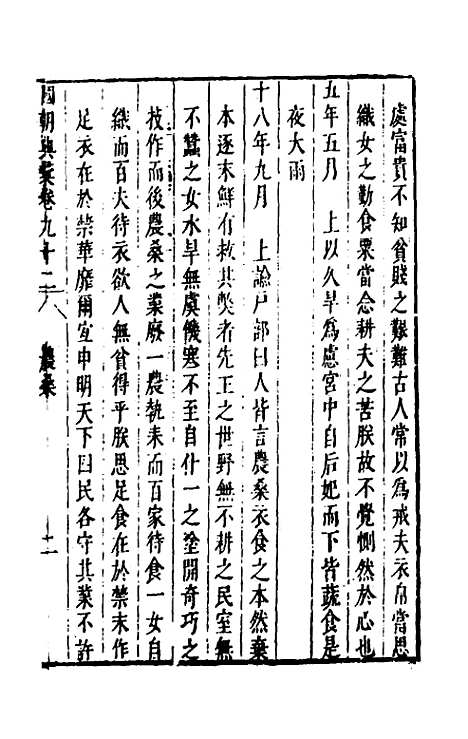 處富貴不知貧賤之艱難古人常以爲戒夫衣帛當思
織女之勤食粟當念耕夫之苦朕故不覺惻然於心也
五年五月　上以久旱爲慮宮中自后妃而下皆蔬食是
夜大雨
十八年九月　上諭戸部曰人皆言農桑衣食之本然棄
本逐末鮮有救其弊者先王之世野無不耕之民室無
不蠶之女水旱無虞饑寒不至自什一之塗開奇巧之
技作而後農桑之業廢一農執耒而百家待食一女自
織而百夫待衣欲人無貧得乎朕思足食在於禁末作
足衣在於禁華靡爾宜申明天下四民各守其業不許
國朝典彙卷九十二　農桑　二